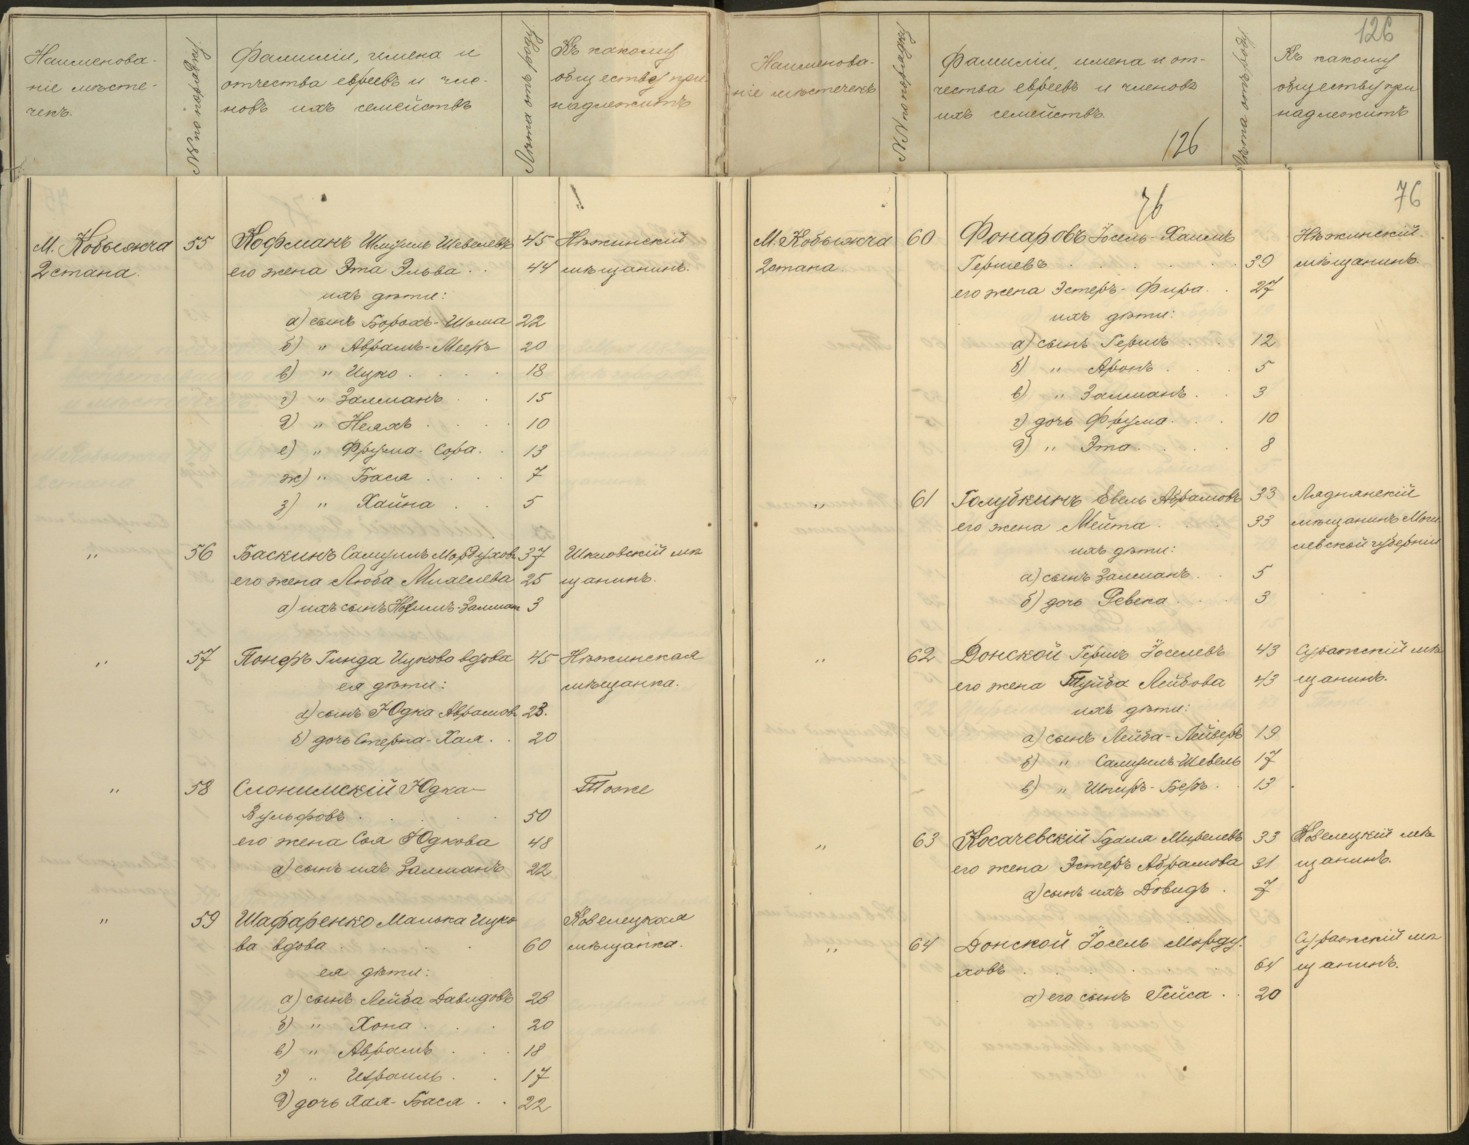 Наименова-
ніе мѣсте-
чекъ.
№№ по порядку
Фамиліи, имена и
отчества евреевъ и чле-
новъ ихъ семействъ
Лѣта отъ роду
Къ какому
обществу при
надлежитъ
М. Кобыжча
2 стана.
55
Кофманъ Шмуиль Шевелевъ 45 Нѣжинскій
его жена Эта Эльва . . 44 мѣщанинъ.
ихъ дѣти:
а) сынъ Борохъ-Шома 22
б) " Аврамъ-Мееръ 20
в) " Ицко . . . . 18
г) " Залманъ . . 15
д) " Неяхъ . . . . 10
е) " Фрума-Сора . . 13
ж) " Бася . . . . 7
з) " Хайна . . . 5
" 56 Баскинъ Самуилъ Мордухов. 37 Шкловскій мѣ
его жена Люба Михелева 25 щанинъ.
а) ихъ сынъ Залман 3
" 57 Понефъ Гинда Ицкова вдова 45 Нѣжинская
ея дѣти: мѣщанка.
а) сынъ Юдка Аврамов. 23.
б) дочь Стерка-Хая . . 20
" 58 Слонимскій Юдка- Тоже
Вульфовъ . . . . . 50
его жена Соя Юдкова 48
а) сынъ ихъ Залманъ 22
" 59 Шафаренко Малька Ицко Козелецкая
ва вдова . . . . 60 мѣщанка.
ея дѣти:
а) сынъ Лейба Давидовъ 28
б) " Хона . . . 20
в) " Аврамъ . . . 18
г) " Израиль . . 17
д) дочь Хая-Бася . . 22
126
Наименова-
ніе мѣстечекъ
№№ по порядку
Фамиліи, имена и от-
чества евреевъ и членовъ
ихъ семействъ.
126
Лѣта отъ роду
Къ какому
обществу при
надлежитъ
76
76
М. Кобыжча 60 Фонаровъ Іосель-Хаимъ Нѣжинскій
2 стана Гершевъ . . . . . . 39 мѣщанинъ.
его жена Эстеръ-Фира . . 27
ихъ дѣти:
а) сынъ Гершъ . 12
б) " Аронъ . . . 5
в) " Залманъ . . 3
г) дочь Фрума . . . 10
д) " Эта . . . . 8
" 61 Голубкинъ Евель Абрамовъ 33 Ляднянскій
его жена Мейта . . 33 мѣщанинъ Моги
ихъ дѣти: левской губерніи
а) сынъ Залманъ . . 5
б) дочь Ревека . . . 3
" 62 Донской Гершъ Іоселевъ 43 Суражскій мѣ
его жена Туйба Лейбова 43 щанинъ.
ихъ дѣти:
а) сынъ Лейба-Лейзеръ 19
б) " Самуилъ-Шевель 17
в) " Шниръ-Беръ . . 13
" 63 Косачевскій Гдаля 33 Козелецкій мѣ
его жена Эстеръ Абрамова 31 щанинъ.
а) сынъ ихъ Довидъ . 7
" 64 Донской Іосель Морду- Суражскій мѣ
ховъ . . . . . . 64 щанинъ.
а) его сынъ Гейса . . 20